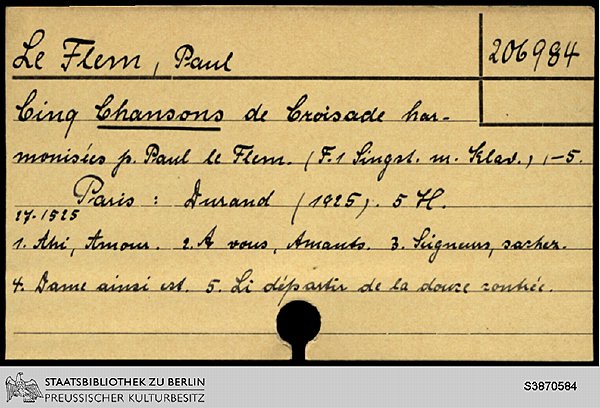 Le Flem, Paul
206984
Cinq Chansons de Croisade har-
monisées p. Paul le Flem. (F. 1 Singst. m. Klav.) 1-5.
Paris: Durand (1925). 5 H.
27.1525
1. Ahi, Amour. 2. A vous, Amants. 3. Seigneurs, sachez.
4. Dame ainsi est. 5. Li départir de la douze contrée.
STAATSBIBLIOTHEK ZU BERLIN
PREUSSISCHER KULTURBESITZ
S3870584